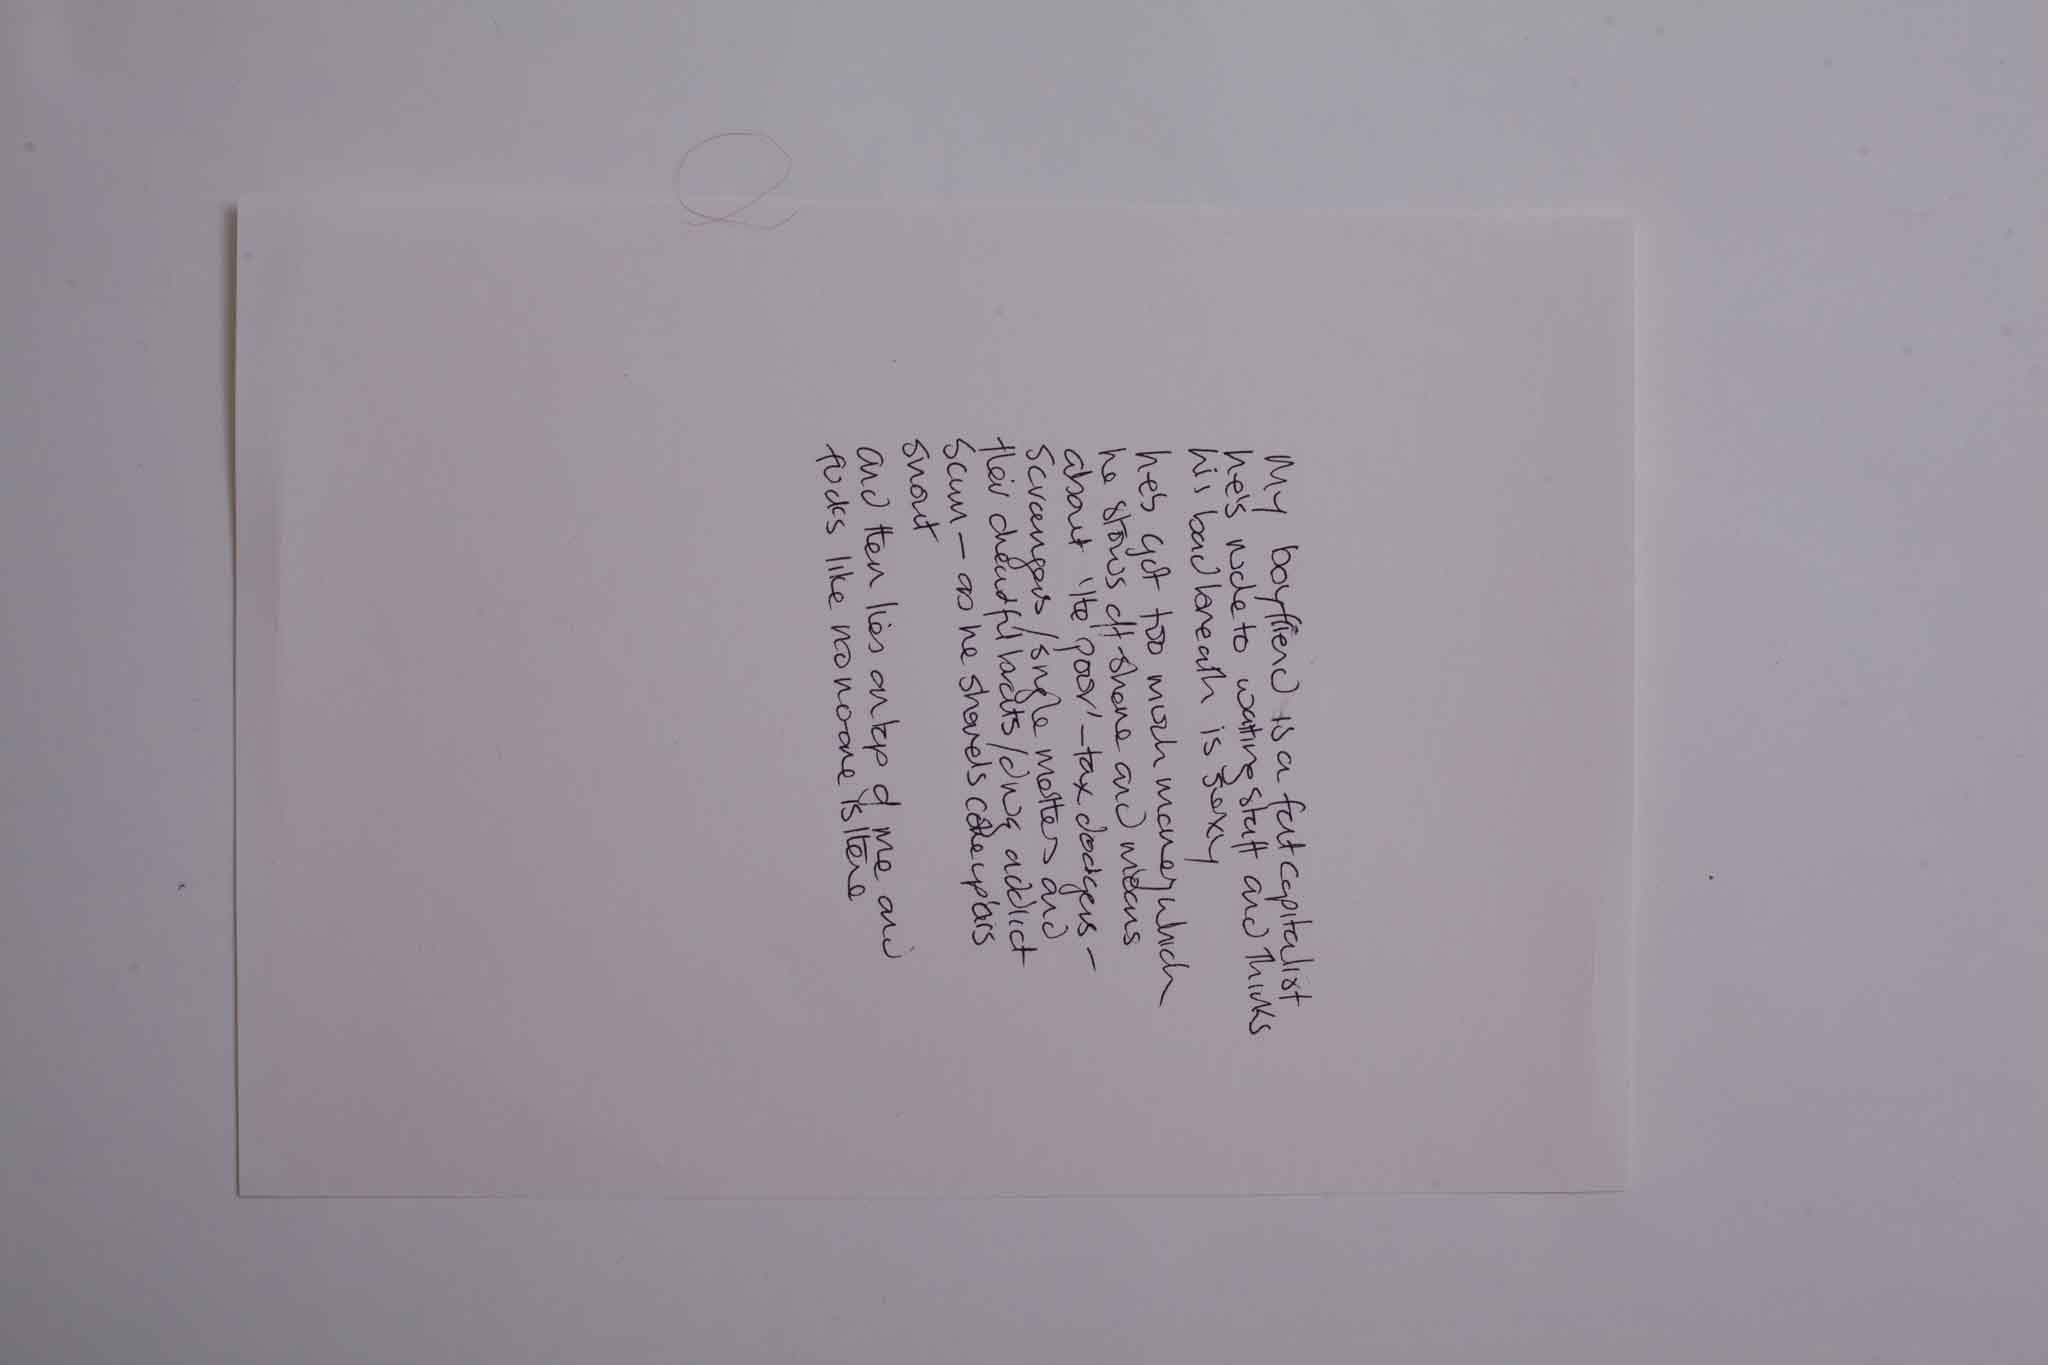 My boyfriend is a fat capitalist
he's rude to waiting staff and thinks
his bad breath is sexy
he's got too much money which
he shows off shame and
about 'the poor' - tax dodgers -
scroungers / single mothers and
their dreadful brats / drug addict
scum - as he shovels coke up his
snout
and then lies on top of me and
fucks like no no one is there